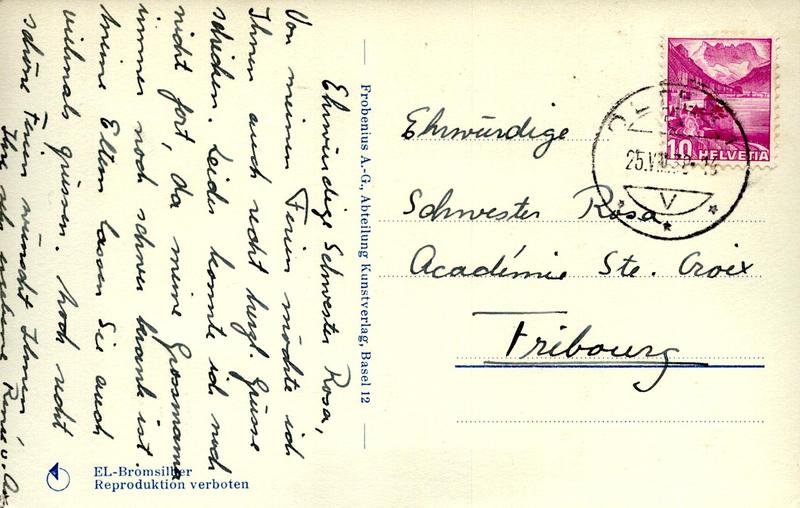 Ehrwürdige Schwester Rosa,
Von meinen Ferien möchte ich
Ihnen auch recht herzl. Grüsse
schicken. Leider konnte ich noch
nicht fort, da meine Grossmama
immer noch schwer krank ist.
Meine Eltern lassen Sie auch
vielmals grüssen. Noch recht
schöne Ferien wünscht Ihnen
Ihre
Frobenius A.-G., Abteilung Kunstverlag, Basel 12
EL-Bromsilber
Reproduktion verboten
10 HELVETIA
V
Ehrwürdige
Schwester Rosa
Académie Ste. Croix
Fribourg